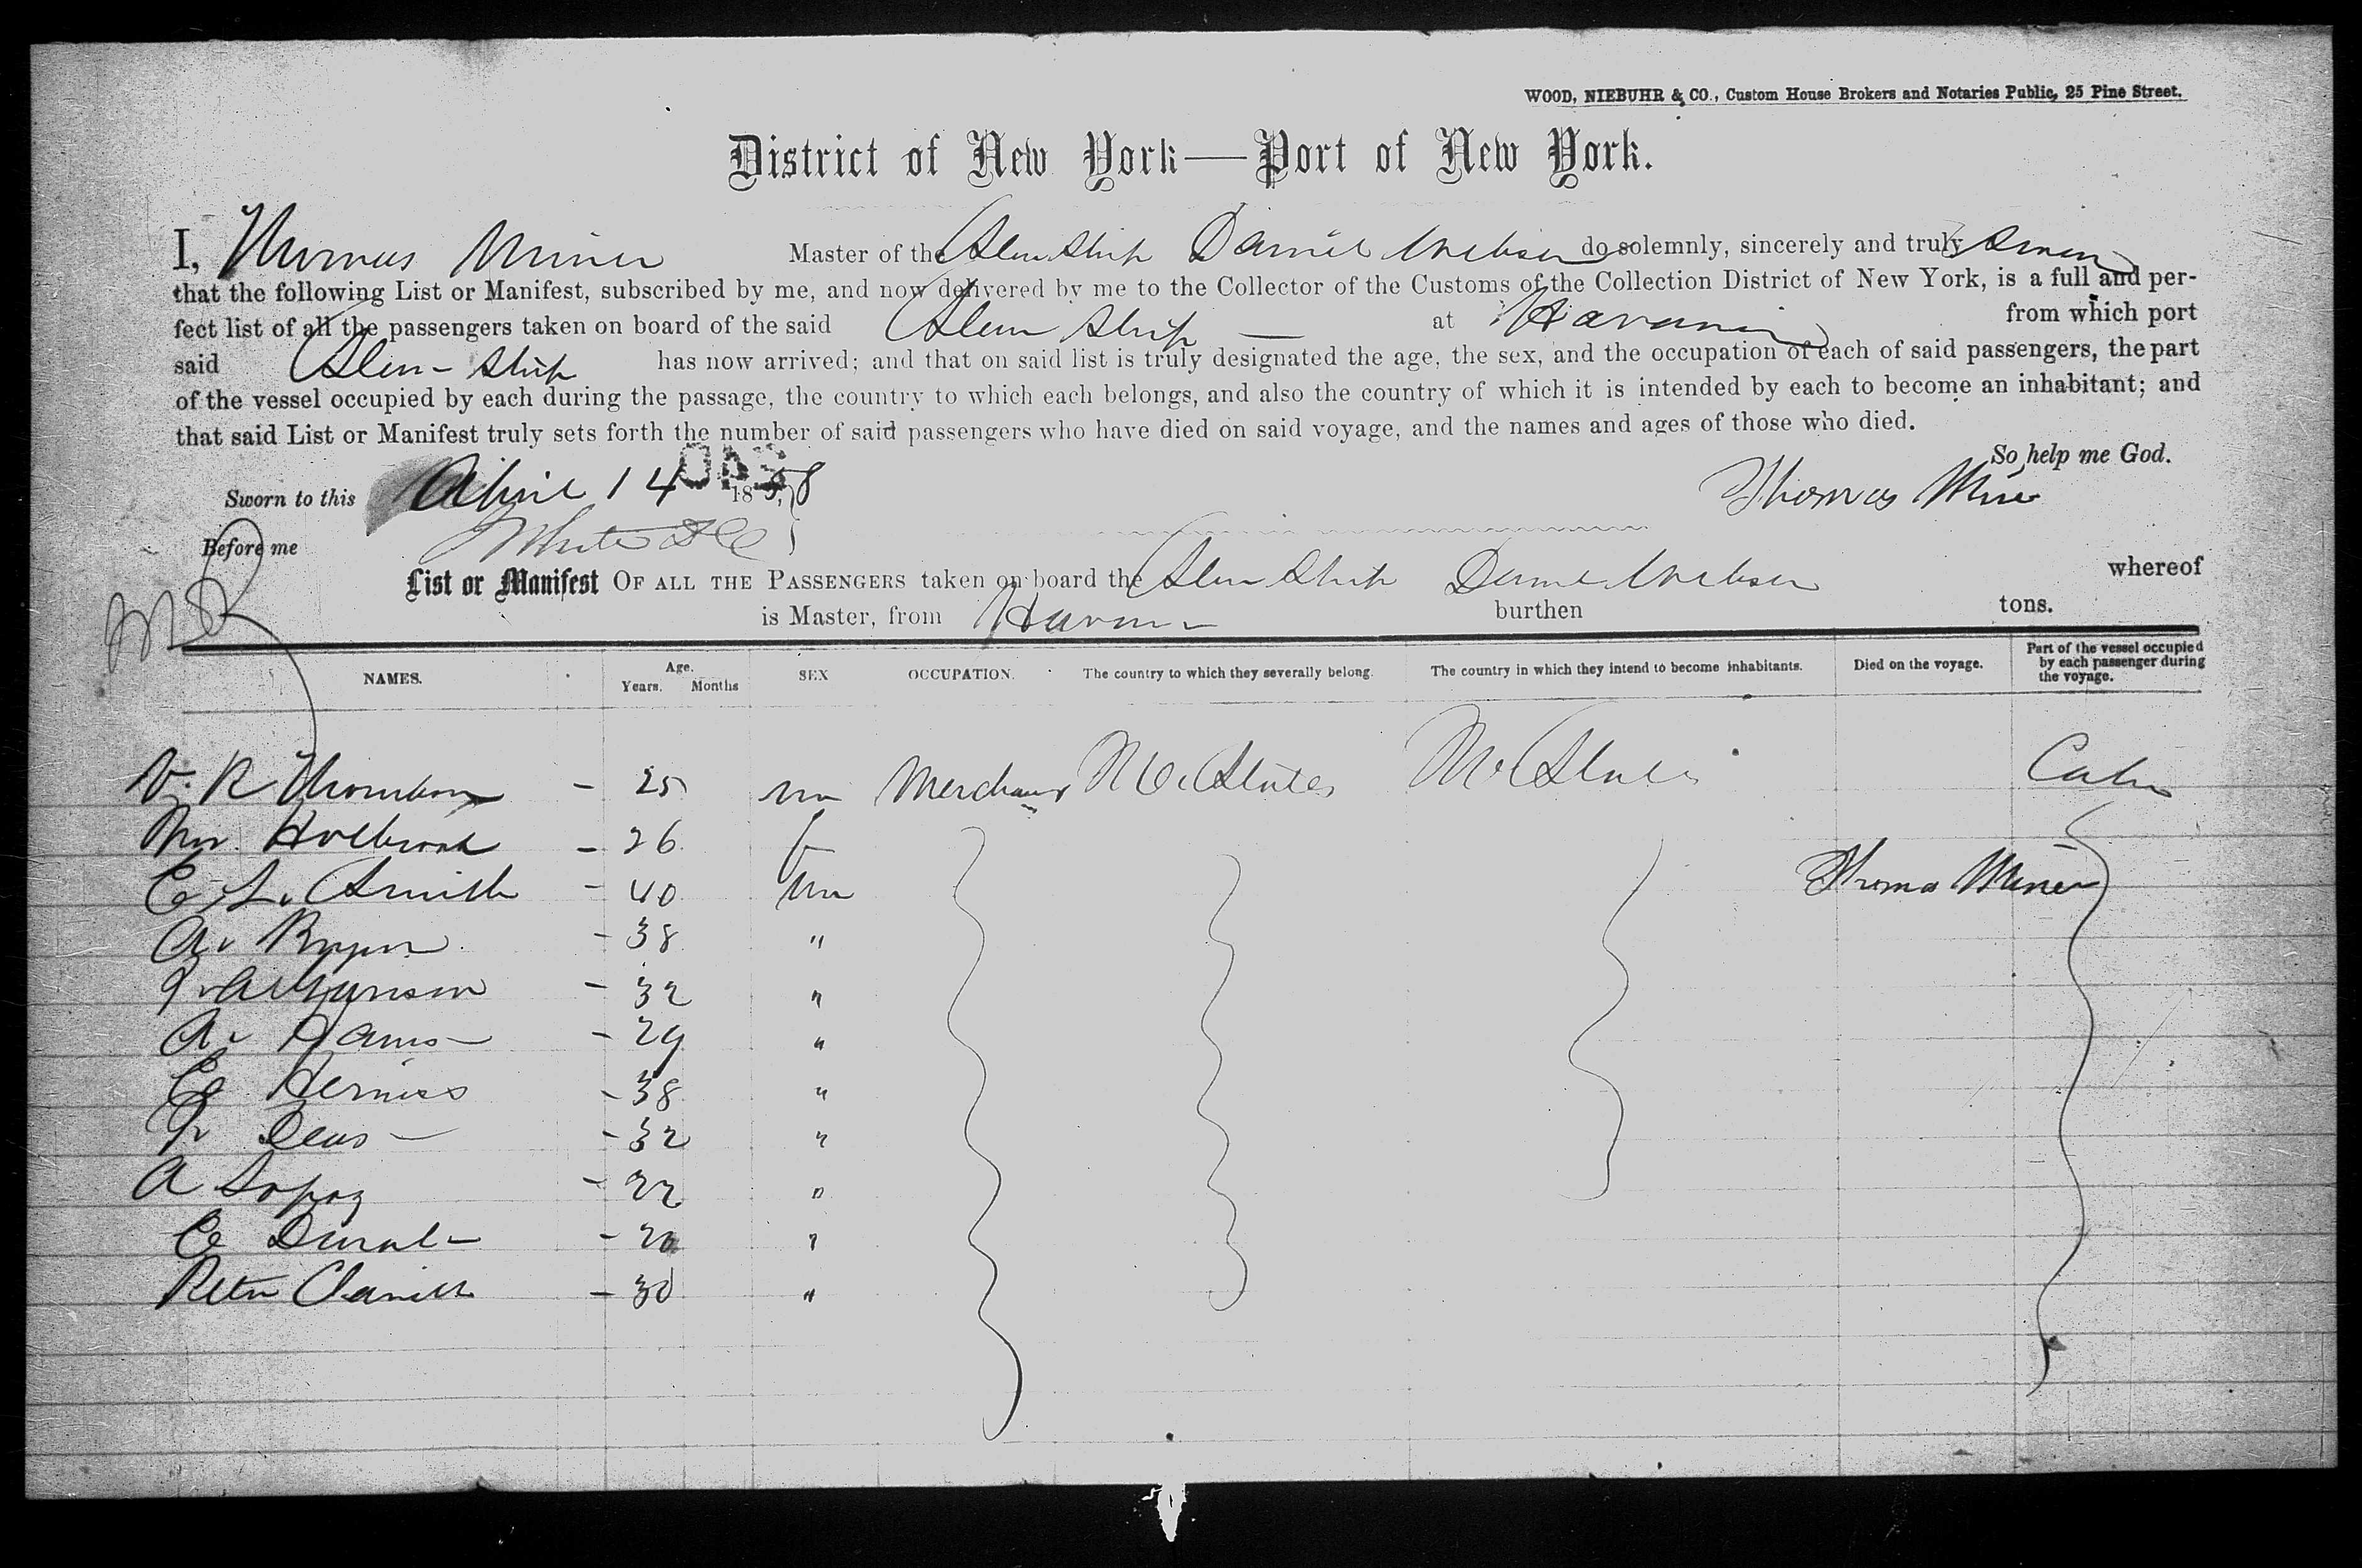 WOOD, NIEBUHR & CO., Custom House Brokers and Notaries Public, 25 Pine Street.
District of New York—Port of New York.
I, Thomas Miner Master of the Stem Ship Daniel Webster do solemnly, sincerely and truly Swear
that the following List or Manifest, subscribed by me, and now delivered by me to the Collector of the Customs of the Collection District of New York, is a full and per-
fect list of all the passengers taken on board of the said Stem Ship — at Havana from which port
said Stem-Ship has now arrived; and that on said list is truly designated the age, the sex, and the occupation of each of said passengers, the part
of the vessel occupied by each during the passage, the country to which each belongs, and also the country of which it is intended by each to become an inhabitant; and
that said List or Manifest truly sets forth the number of said passengers who have died on said voyage, and the names and ages of those who died.
So help me God.
Sworn to this April 14 1858 Thomas Miner
Before me
List or Manifest OF ALL THE PASSENGERS taken on board the Stem Ship Daniel Webster whereof
is Master, from Havana burthen tons.
NAMES. Age. Years. Months SEX OCCUPATION. The country to which they severally belong. The country in which they intend to become inhabitants. Died on the voyage. Part of the vessel occupied by each passenger during the voyage.
V. R Thornton - 25 m Merchant U. States U. States Cabin
Mrs. Holbrook - 26 f
E. L. Smith - 40 m Thomas Miner
A. - 38 "
- 32 "
A. - 29 "
C - 38 "
- 32 "
A Lopez - 22 "
C Duval - 20 "
Peter - 30 "